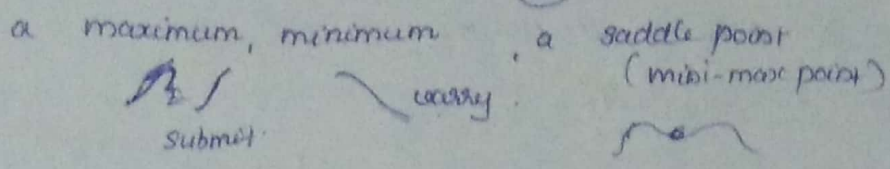 a maximum, minimum, a saddle point
(mini-max point)
submit